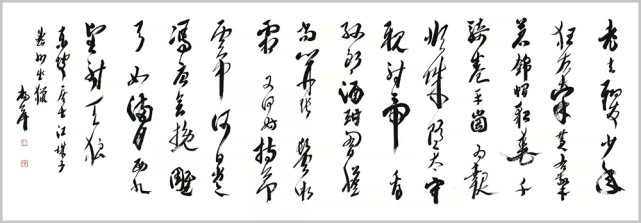 老夫聊发少年
狂左牵黄右擎
苍锦帽貂裘千
骑卷平冈为报
倾城随太守
亲射虎看
孙郎酒酣胸胆
尚开张鬓微
霜又何妨持节
云中何日遣
冯唐会挽雕
弓如满月西北
望射天狼
东坡居士江城子
密州出猎